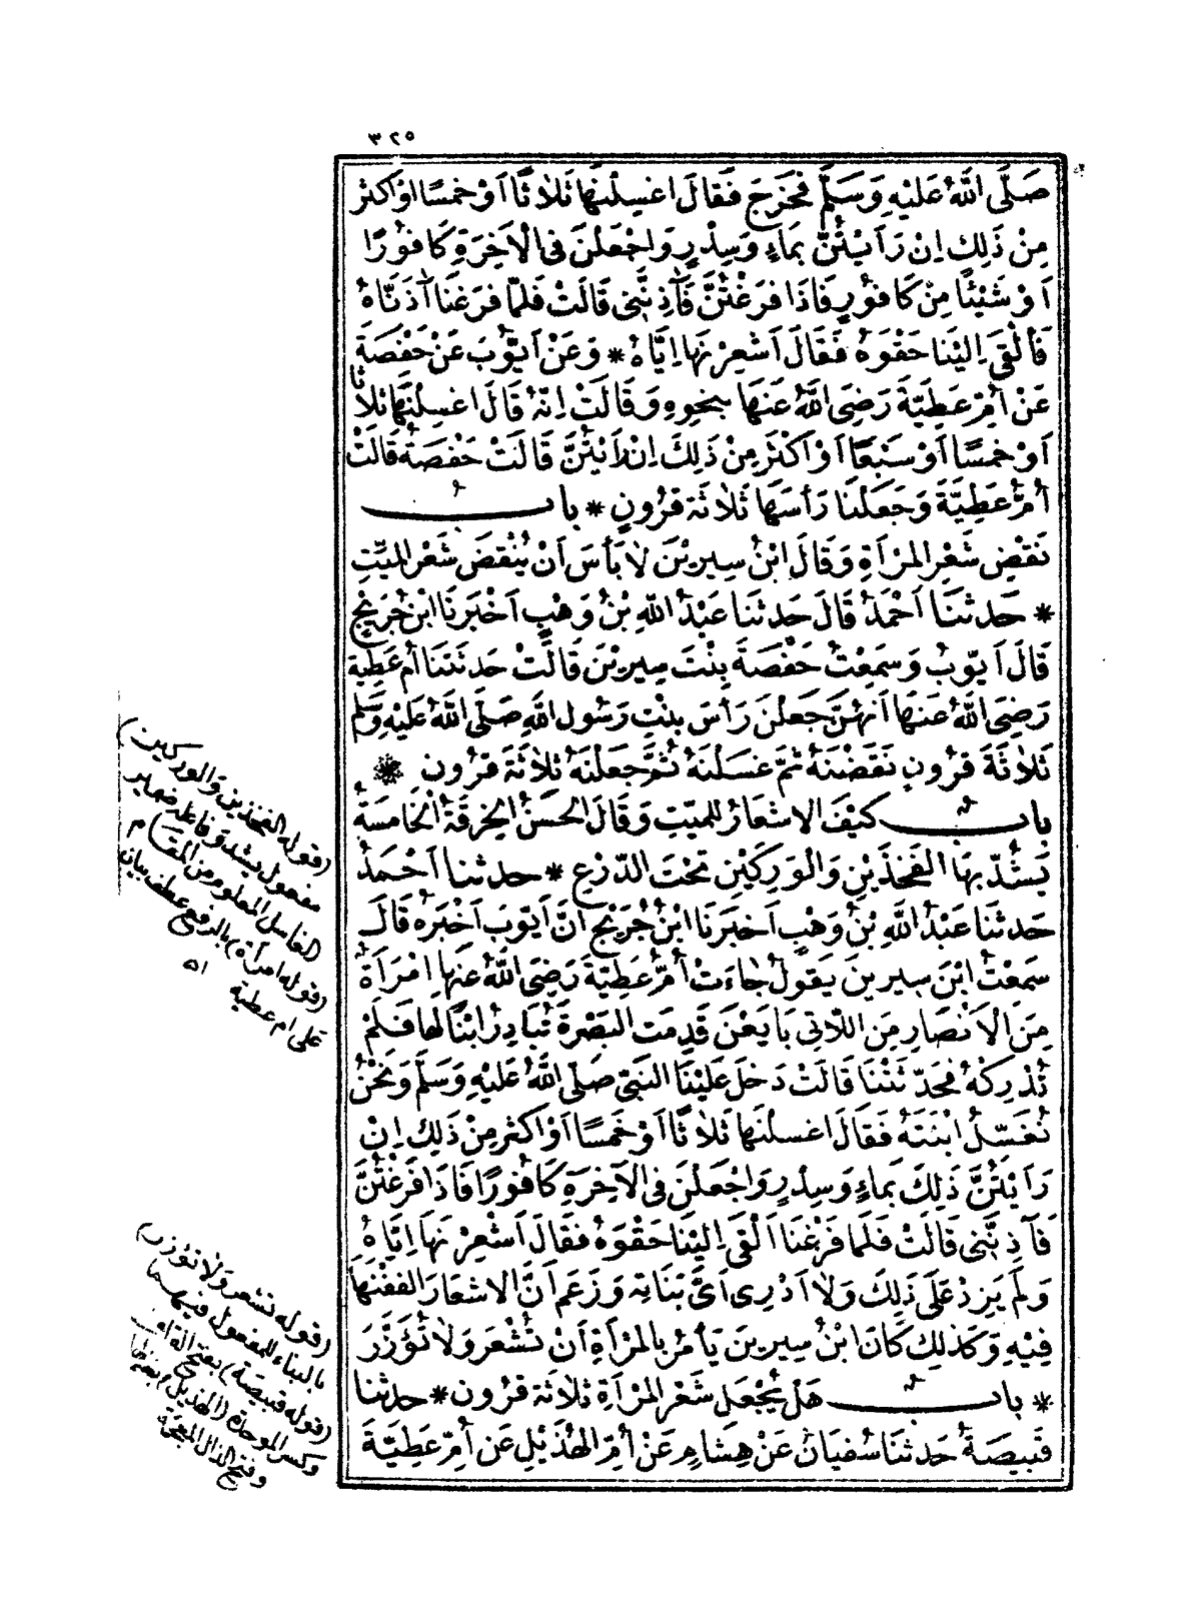 ٣٢٥
صَلَّى اللَّهُ عَلَيْهِ وَسَلَّمَ فَخَرَجَ فَقَالَ اغْسِلْنَهَا ثَلَاثًا أَوْ خَمْسًا أَوْ أَكْثَرَ
مِنْ ذَلِكِ إِنْ رَأَيْتُنَّ بِمَاءٍ وَسِدْرٍ وَاجْعَلْنَ فِي الْآخِرَةِ كَافُورًا
أَوْ شَيْئًا مِنْ كَافُورٍ فَإِذَا فَرَغْتُنَّ فَآذِنَّنِي قَالَتْ فَلَمَّا فَرَغْنَا آذَنَّاهُ
فَأَلْقَى إِلَيْنَا حَقْوَهُ فَقَالَ أَشْعِرْنَهَا إِيَّاهُ * وَعَنْ أَيُّوبَ عَنْ حَفْصَةَ
عَنْ أُمِّ عَطِيَّةَ رَضِيَ اللَّهُ عَنْهَا بِنَحْوِهِ وَقَالَتْ إِنَّهُ قَالَ اغْسِلْنَهَا ثَلَاثًا
أَوْ خَمْسًا أَوْ سَبْعًا أَوْ أَكْثَرَ مِنْ ذَلِكَ إِنْ رَأَيْتُنَّ قَالَتْ حَفْصَةُ قَالَتْ
أُمُّ عَطِيَّةَ وَجَعَلْنَا رَأْسَهَا ثَلَاثَةَ قُرُونٍ * بَابُ
نَقْضِ شَعْرِ الْمَرْأَةِ وَقَالَ ابْنُ سِيرِينَ لَا بَأْسَ أَنْ يُنْقَضَ شَعْرُ الْمَيِّتِ
* حَدَّثَنَا أَحْمَدُ قَالَ حَدَّثَنَا عَبْدُ اللَّهِ بْنُ وَهْبٍ أَخْبَرَنَا ابْنُ جُرَيْجٍ
قَالَ أَيُّوبُ وَسَمِعْتُ حَفْصَةَ بِنْتَ سِيرِينَ قَالَتْ حَدَّثَتْنَا أُمُّ عَطِيَّةَ
رَضِيَ اللَّهُ عَنْهَا أَنَّهُنَّ جَعَلْنَ رَأْسَ بِنْتِ رَسُولِ اللَّهِ صَلَّى اللَّهُ عَلَيْهِ وَسَلَّمَ
ثَلَاثَةَ قُرُونٍ نَقَضْنَهُ ثُمَّ غَسَلْنَهُ ثُمَّ جَعَلْنَهُ ثَلَاثَةَ قُرُونٍ *
بَابٌ كَيْفَ الْإِشْعَارُ لِلْمَيِّتِ وَقَالَ الْحَسَنُ الْخِرْقَةُ الْخَامِسَةُ
يَشُدُّ بِهَا الْفَخِذَيْنِ وَالْوَرِكَيْنِ تَحْتَ الدِّرْعِ * حَدَّثَنَا أَحْمَدُ
حَدَّثَنَا عَبْدُ اللَّهِ بْنُ وَهْبٍ أَخْبَرَنَا ابْنُ جُرَيْجٍ أَنَّ أَيُّوبَ أَخْبَرَهُ قَالَ
سَمِعْتُ ابْنَ سِيرِينَ يَقُولُ جَاءَتْ أُمُّ عَطِيَّةَ رَضِيَ اللَّهُ عَنْهَا امْرَأَةٌ
مِنَ الْأَنْصَارِ مِنَ اللَّاتِي بَايَعْنَ قَدِمَتِ الْبَصْرَةَ تُبَادِرُ ابْنًا لَهَا فَلَمْ
تُدْرِكْهُ فَحَدَّثَتْنَا قَالَتْ دَخَلَ عَلَيْنَا النَّبِيُّ صَلَّى اللَّهُ عَلَيْهِ وَسَلَّمَ وَنَحْنُ
نُغَسِّلُ ابْنَتَهُ فَقَالَ اغْسِلْنَهَا ثَلَاثًا أَوْ خَمْسًا أَوْ أَكْثَرَ مِنْ ذَلِكِ إِنْ
رَأَيْتُنَّ ذَلِكَ بِمَاءٍ وَسِدْرٍ وَاجْعَلْنَ فِي الْآخِرَةِ كَافُورًا فَإِذَا فَرَغْتُنَّ
فَآذِنَّنِي قَالَتْ فَلَمَّا فَرَغْنَا أَلْقَى إِلَيْنَا حَقْوَهُ فَقَالَ أَشْعِرْنَهَا إِيَّاهُ
وَلَمْ يَزِدْ عَلَى ذَلِكَ وَلَا أَدْرِي أَيُّ بَنَاتِهِ وَزَعَمَ أَنَّ الْإِشْعَارَ الْفُفْنَهَا
فِيهِ وَكَذَلِكَ كَانَ ابْنُ سِيرِينَ يَأْمُرُ بِالْمَرْأَةِ أَنْ تُشْعَرَ وَلَا تُؤَزَّرَ
* بَابٌ هَلْ يُجْعَلُ شَعْرُ الْمَرْأَةِ ثَلَاثَةَ قُرُونٍ * حَدَّثَنَا
قَبِيصَةُ حَدَّثَنَا سُفْيَانُ عَنْ هِشَامٍ عَنْ أُمِّ الْهُذَيْلِ عَنْ أُمِّ عَطِيَّةَ
(قوله الفخذين والوركين)
مفعول يشد وفاعله ضمير
الغاسل المعلوم من المقام
(قوله امرأة) بالرفع عطف بيان
على ام عطية اه
(قوله تشعر ولا تؤزر)
بالبناء للمفعول فيهما
(قوله قبيصة) بفتح القاف
وكسر الموحدة (الهذيل) بضم الها
وفتح الذال المعجمة